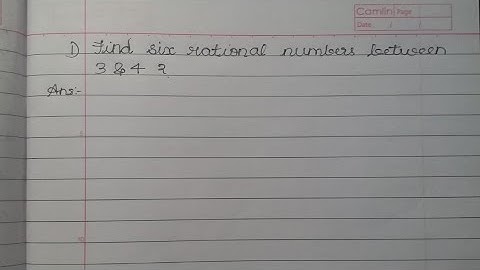 Camlin Page
Date / /
1) Find six rational numbers between
3 & 4 ?
Ans:-